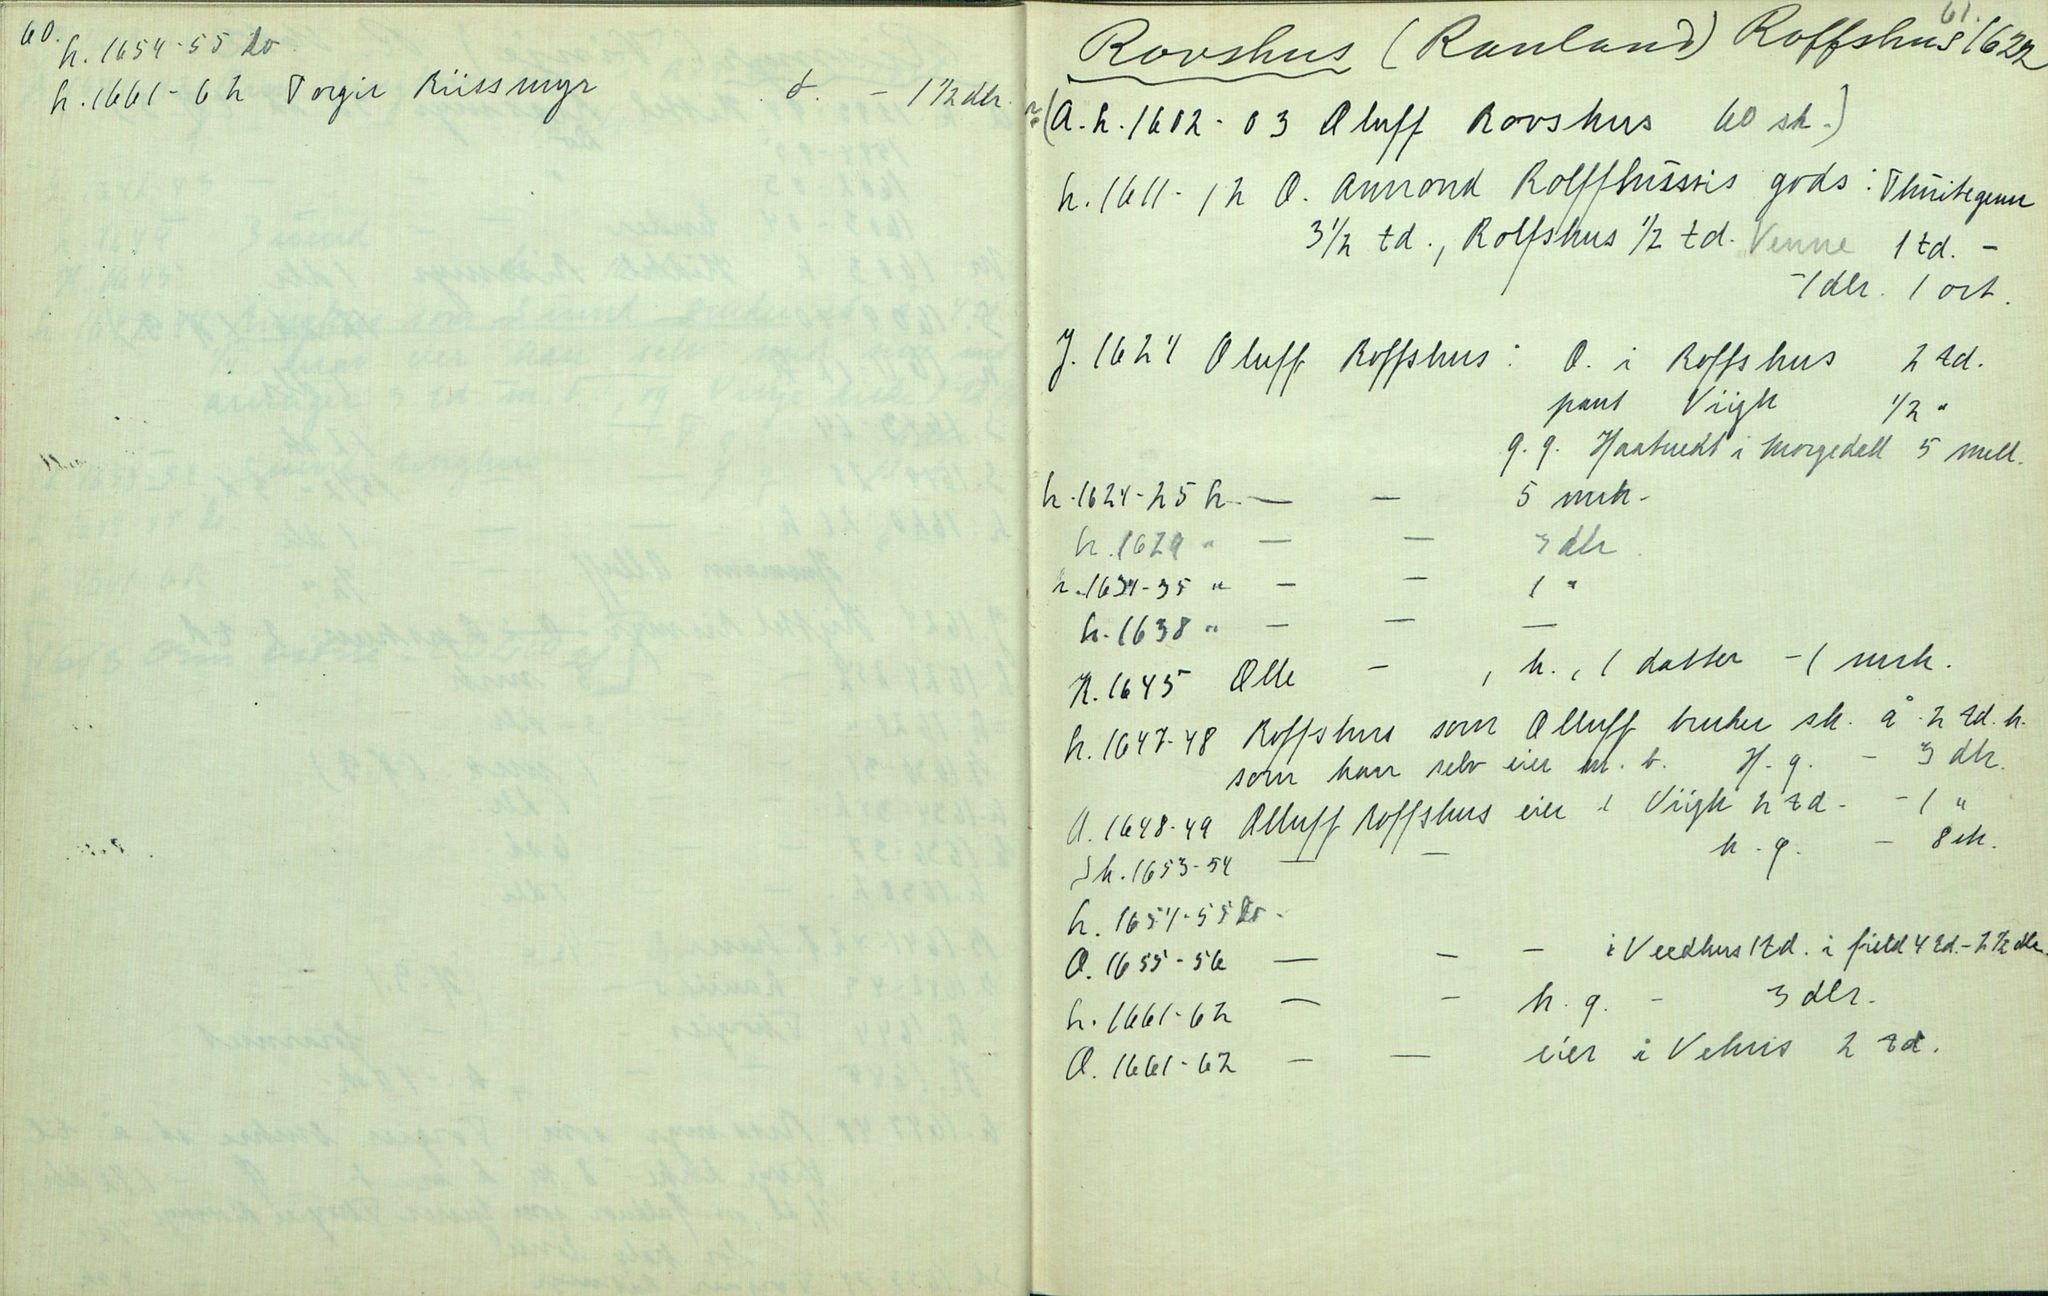 60.
h. 1654-55 do
h. 1661-62 Torgir Riissmyr d. - 1 1/2 dlr.
61.
Rovshus (Rauland) Roffshus 1622
(A.h. 1602-03 Oluff Rovshus 60 sk.)
h. 1611-12 O. Amond Rolffhussis gods:
3 1/2 td., Rolfshus 1/2 td. Venne 1 td. -
-1 dlr. 1 ort.
J. 1624 Oluff Roffshus: O. i Roffshus 2 td.
pant Viigh 1/2 "
g.g. Haatvedt i Morgedall 5 mell.
h. 1624-25 h. — — 5 mrk.
h. 1629 " — — 3 dlr.
h. 1634-35 " — — 1 "
h. 1638 " — — —
K. 1645 Olle — , h., 1 datter - 1 mrk.
h. 1647-48 Roffshus som Olluff bruker sk. å 2 td. h.
som han selv eier m. b. H. g. - 3 dlr.
O. 1648-49 Olluff Roffshus eier i Viigh 2 td. - 1 "
Sk. 1653-54 — — h. g. - 8 sk.
h. 1654-55 do -
O. 1655-56 — — — i Veedhus 1 td. i field 4 td. - 2 1/2 dlr.
h. 1661-62 — — h. g. - 3 dlr.
O. 1661-62 — — eier i Vehus 2 td.